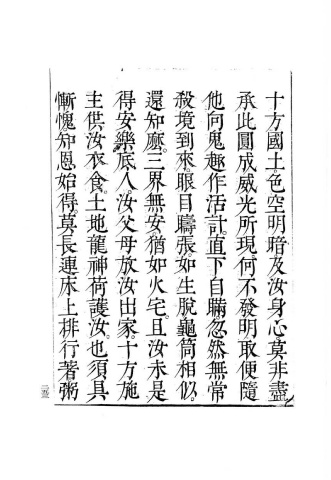 十方國土。色空明暗及汝身心莫非盡
承此圓成威光所現。何不發明取便隨
他向鬼趣作活計。直下自瞞忽然無常
殺境到來。眼目譸張。如生脫龜筒相似。
還知麼。三界無安。猶如火宅。且汝未是
得安樂底人。汝父母放汝出家。十方施
主供汝衣食。土地龍神荷護汝。也須具
慚愧。知恩始得。莫長連床上排行著粥